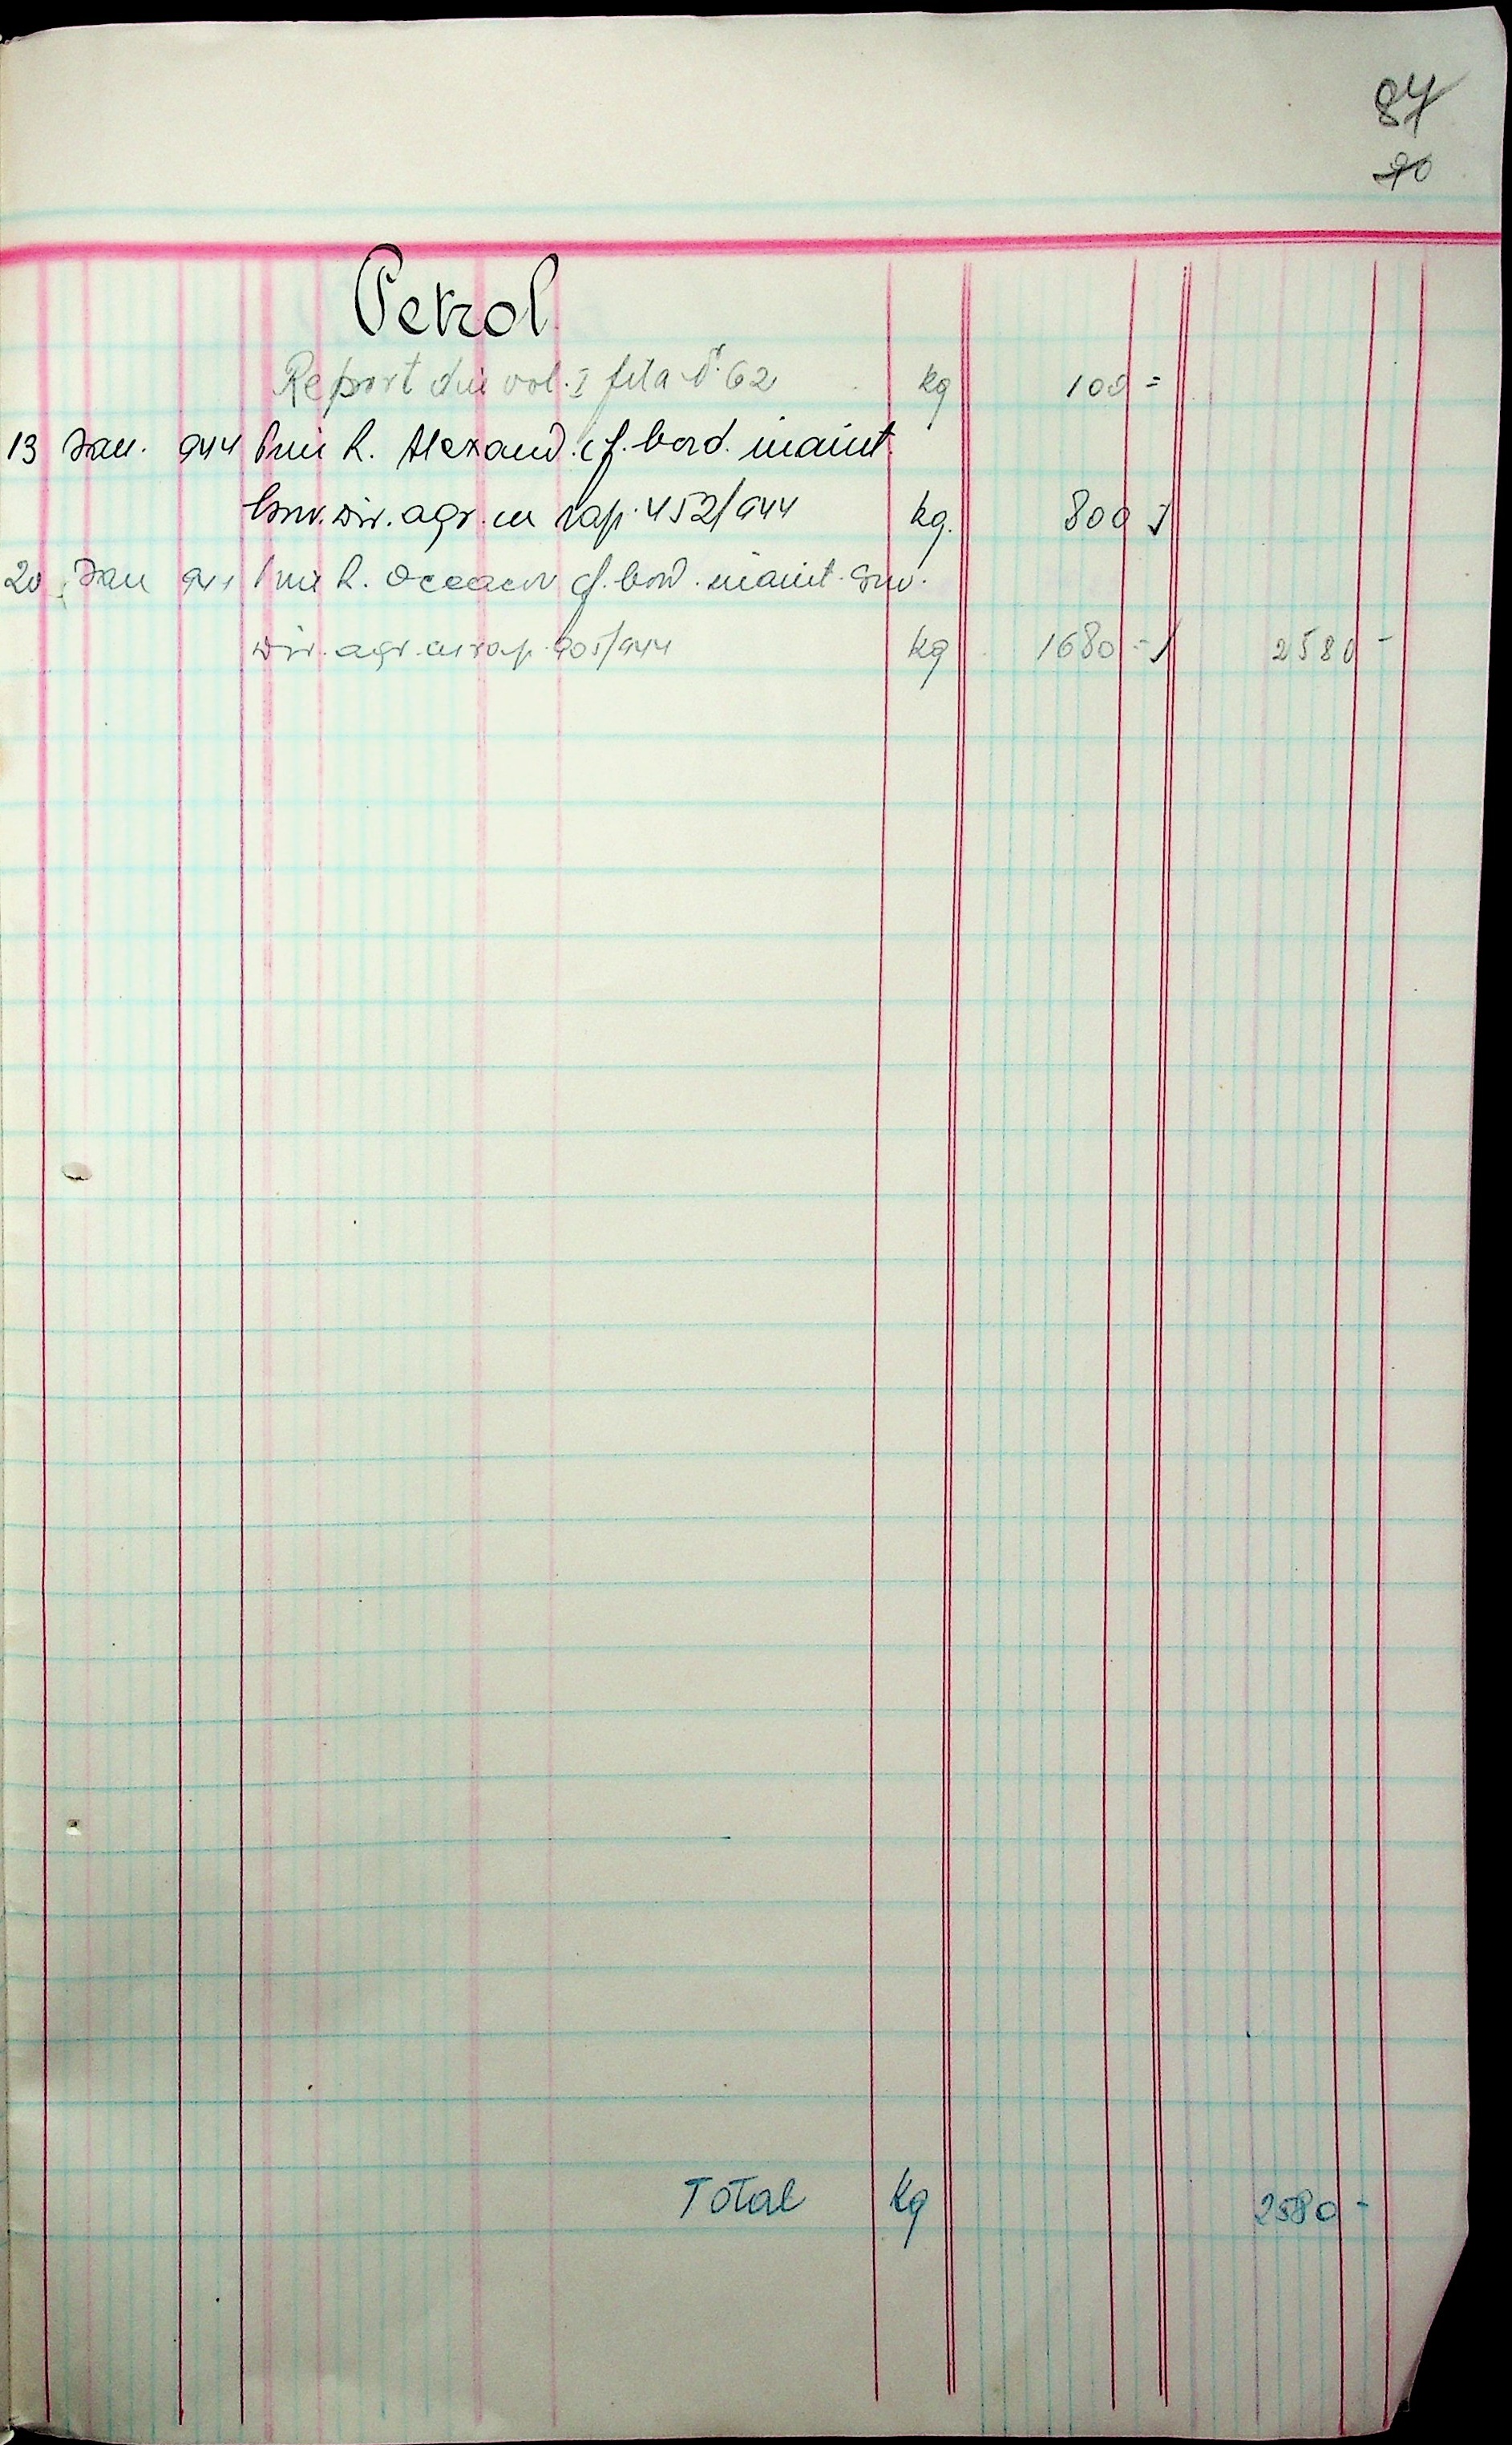 87
90
Petrol
Report din vol. I fila 62 kg 100 =
13 Ian. 944 Prin R. Alexand. cf. bord. inaint.
Serv. dir. agr. cu rap. 452/944 kg. 800
20 Ian 944 Prin R. cf. bord. inaint. Serv.
dir. agr. cu rap. 905/944 kg 1680 - 2580 -
Total Kg 2580 -